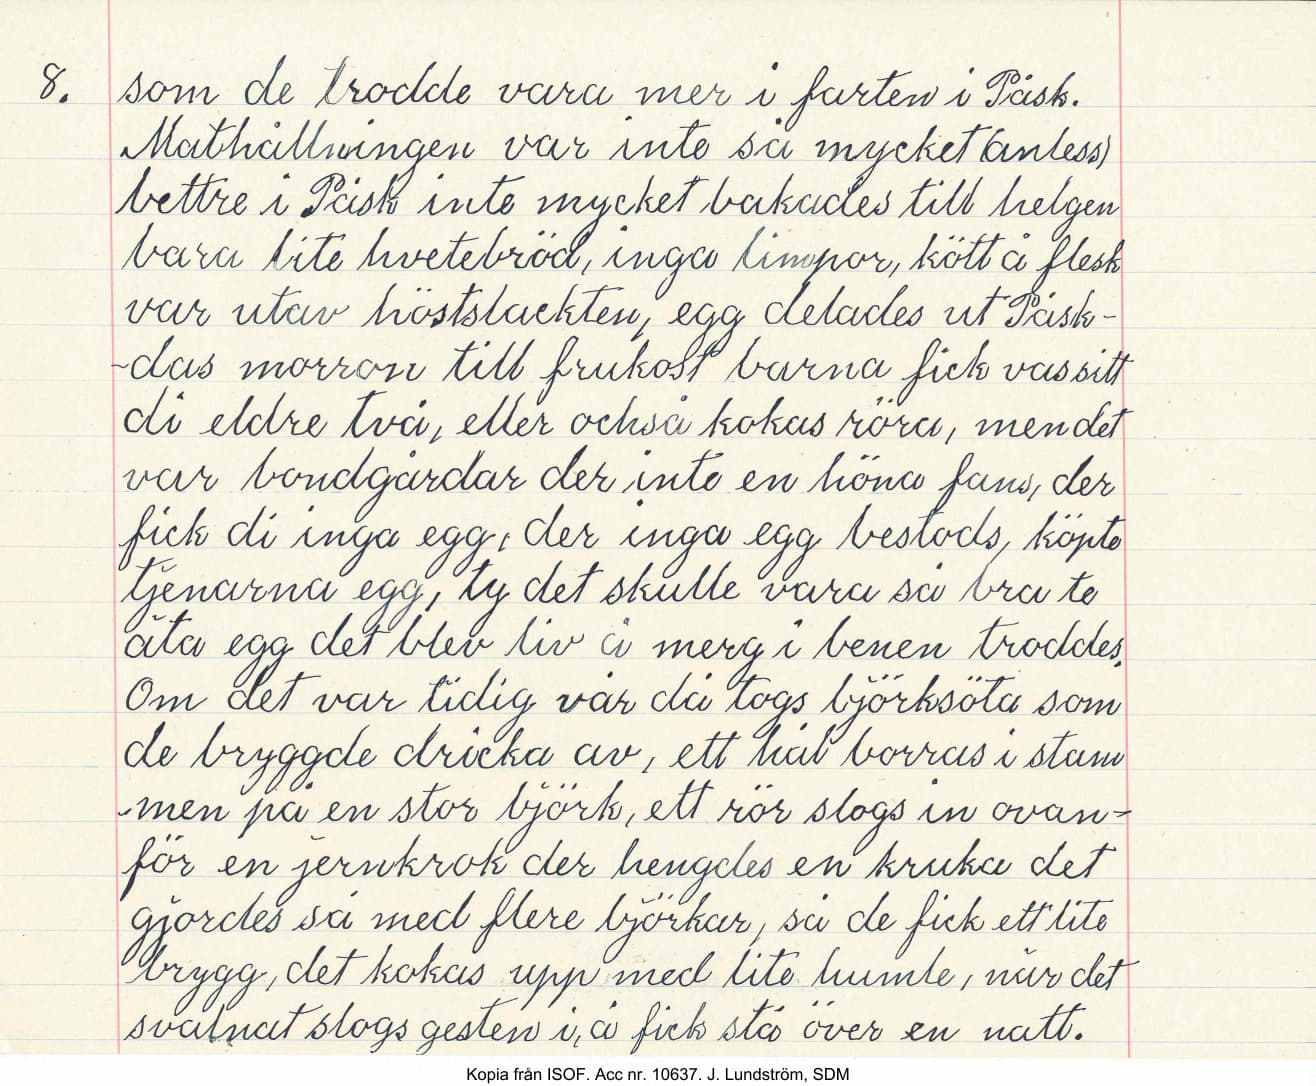 8. som de trodde vara mer i farten i Påsk.
Mathållningen var inte så mycket (anless)
bettre i Påsk inte mycket bakades till helgen
bara lite hvetebröd, inga limpor, kött å flesk
var utav höstslackten, egg delades ut Påsk-
-das morron till frukost barna fick vas sitt
di eldre två, eller också kokas röra, men det
var bondgårdar der inte en höna fans, der
fick di inga egg, der inga egg bestods, köpte
tjenarna egg, ty det skulle vara så bra te
äta egg det blev liv å merg i benen troddes.
Om det var tidig vår då togs björksöta som
de bryggde dricka av, ett hål borras i stam
-men på en stor björk, ett rör slogs in ovan-
för en jernkrok der hengdes en kruka det
gjordes så med flere björkar, så de fick ett lite
brygg, det kokas upp med lite humle, når det
svalnat slogs gesten i, å fick stå över en natt.
Kopia från ISOF. Acc nr. 10637. J. Lundström, SDM